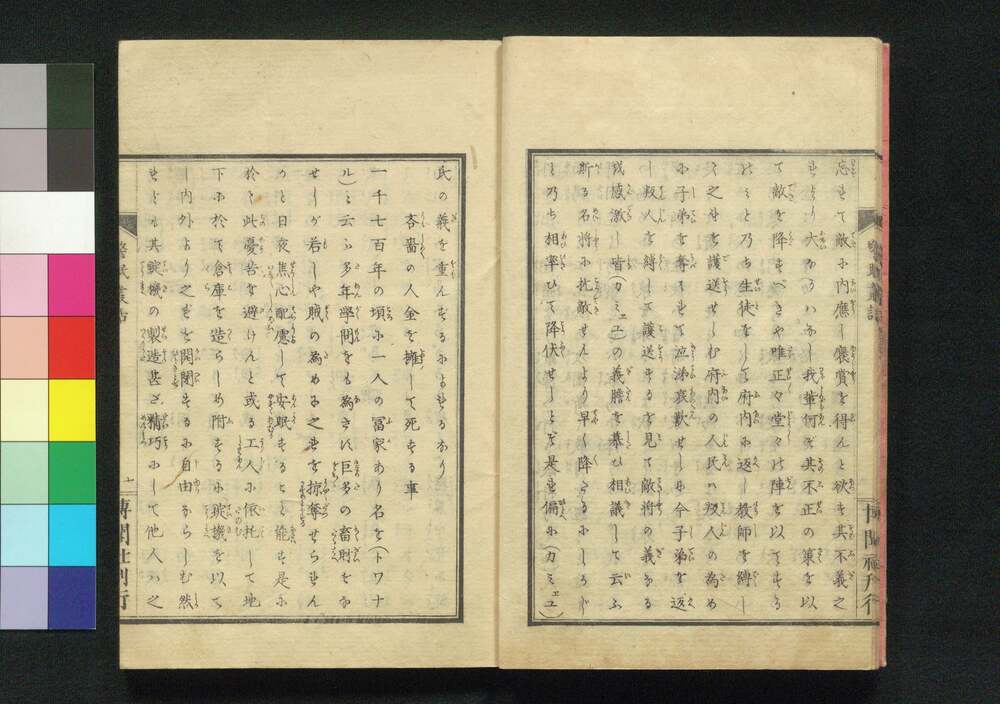 忘れて敵に内應し褒賞を得んと欲も其不義之
れより大なるハなし我輩何ぞ其不正の策を以
て敵を降すべきや唯正々堂々の陣を以てする
のミと乃ち生徒をして府内に返し教師を縛し
て之れを護送せしむ府内の人民ハ叛人の為め
に子弟を奪られて泣涕哀歎せしに今子弟を返
し叛人を縛して護送するを見て敵將の義ある
感激し皆(カミユ)の義膽を慕ひ相議して云ふ
斯る名將に抗敵せんより早く降るにしかじ
と乃ち相率ひて降伏せしとぞ是れ偏に(カミユ)
氏の義を重んずるによれるなり
吝嗇の人金を擁して死する事
一千七百年の頃に一人の冨家あり名を(トワナ
ル)と云ふ多年學問をも為さに巨多の畜財をな
せしが若しや賊の為めに之れを掠奪せられん
かと日夜焦心配慮して安眠すること能はず是に
於て此憂苦を避けんと或る工人に依托して地
下に於て倉庫を造らしめ附するに鎖機を以て
し内外より之れを開閉するに自由ならしむ然
れども其鎖機の製造甚ざ精巧にして他人ハ之
傳聞社刊行